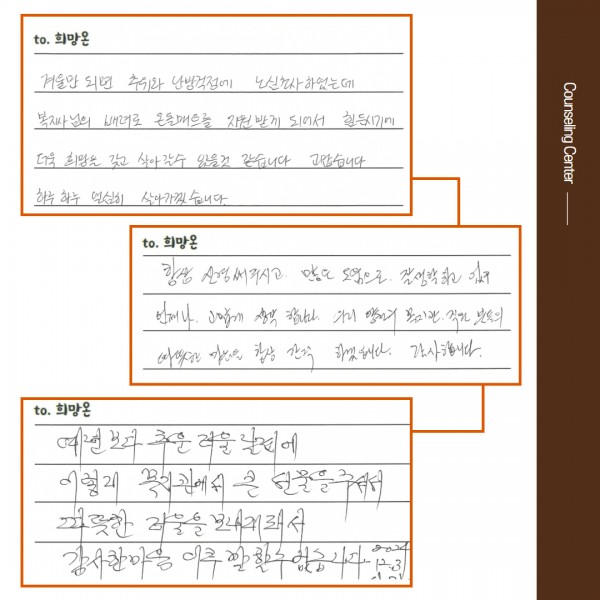 to. 희망온
겨울만 되면 추위와 난방걱정에 노심초사하였는데
복지사님의 배려로 온돌매트를 지원받게 되어서 힘든시기에
더욱 희망을 갖고 살아갈수 있을것 같습니다 고맙습니다
하루 하루 열심히 살아가겠습니다.
to. 희망온
항상 신경써주시고. 많은 도움으로. 잘생활하고 있어
언제나. 고맙게 생각 합니다. 복지관. 직원 분들의
마음을 항상 간직 하겠습니다. 감사합니다.
to. 희망온
예년보다 추운 겨울 날씨에
이렇게 복지관에서 큰 선물을 주셔서
따뜻한 겨울을 보내게 되서
감사한마음 이루 말 할 수 없습니다
2024
12.31
Counseling Center